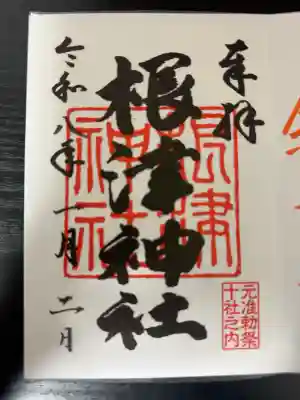 奉拝
元准勅祭
十社之内
根津神社
根津
神社
令和八年一月二日